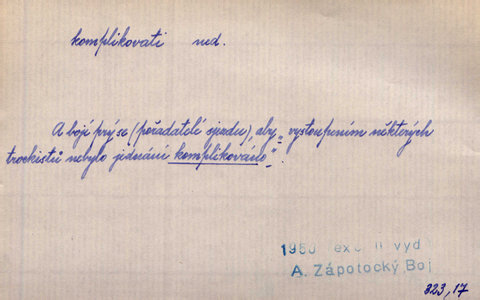 komplikovati ned.
A bojí prý se (pořadatelé sjezdu), aby „vystoupením některých
trockistů nebylo jednání komplikováno“.
1950 exc II vyd
A. Zápotocký, Boj
323,17